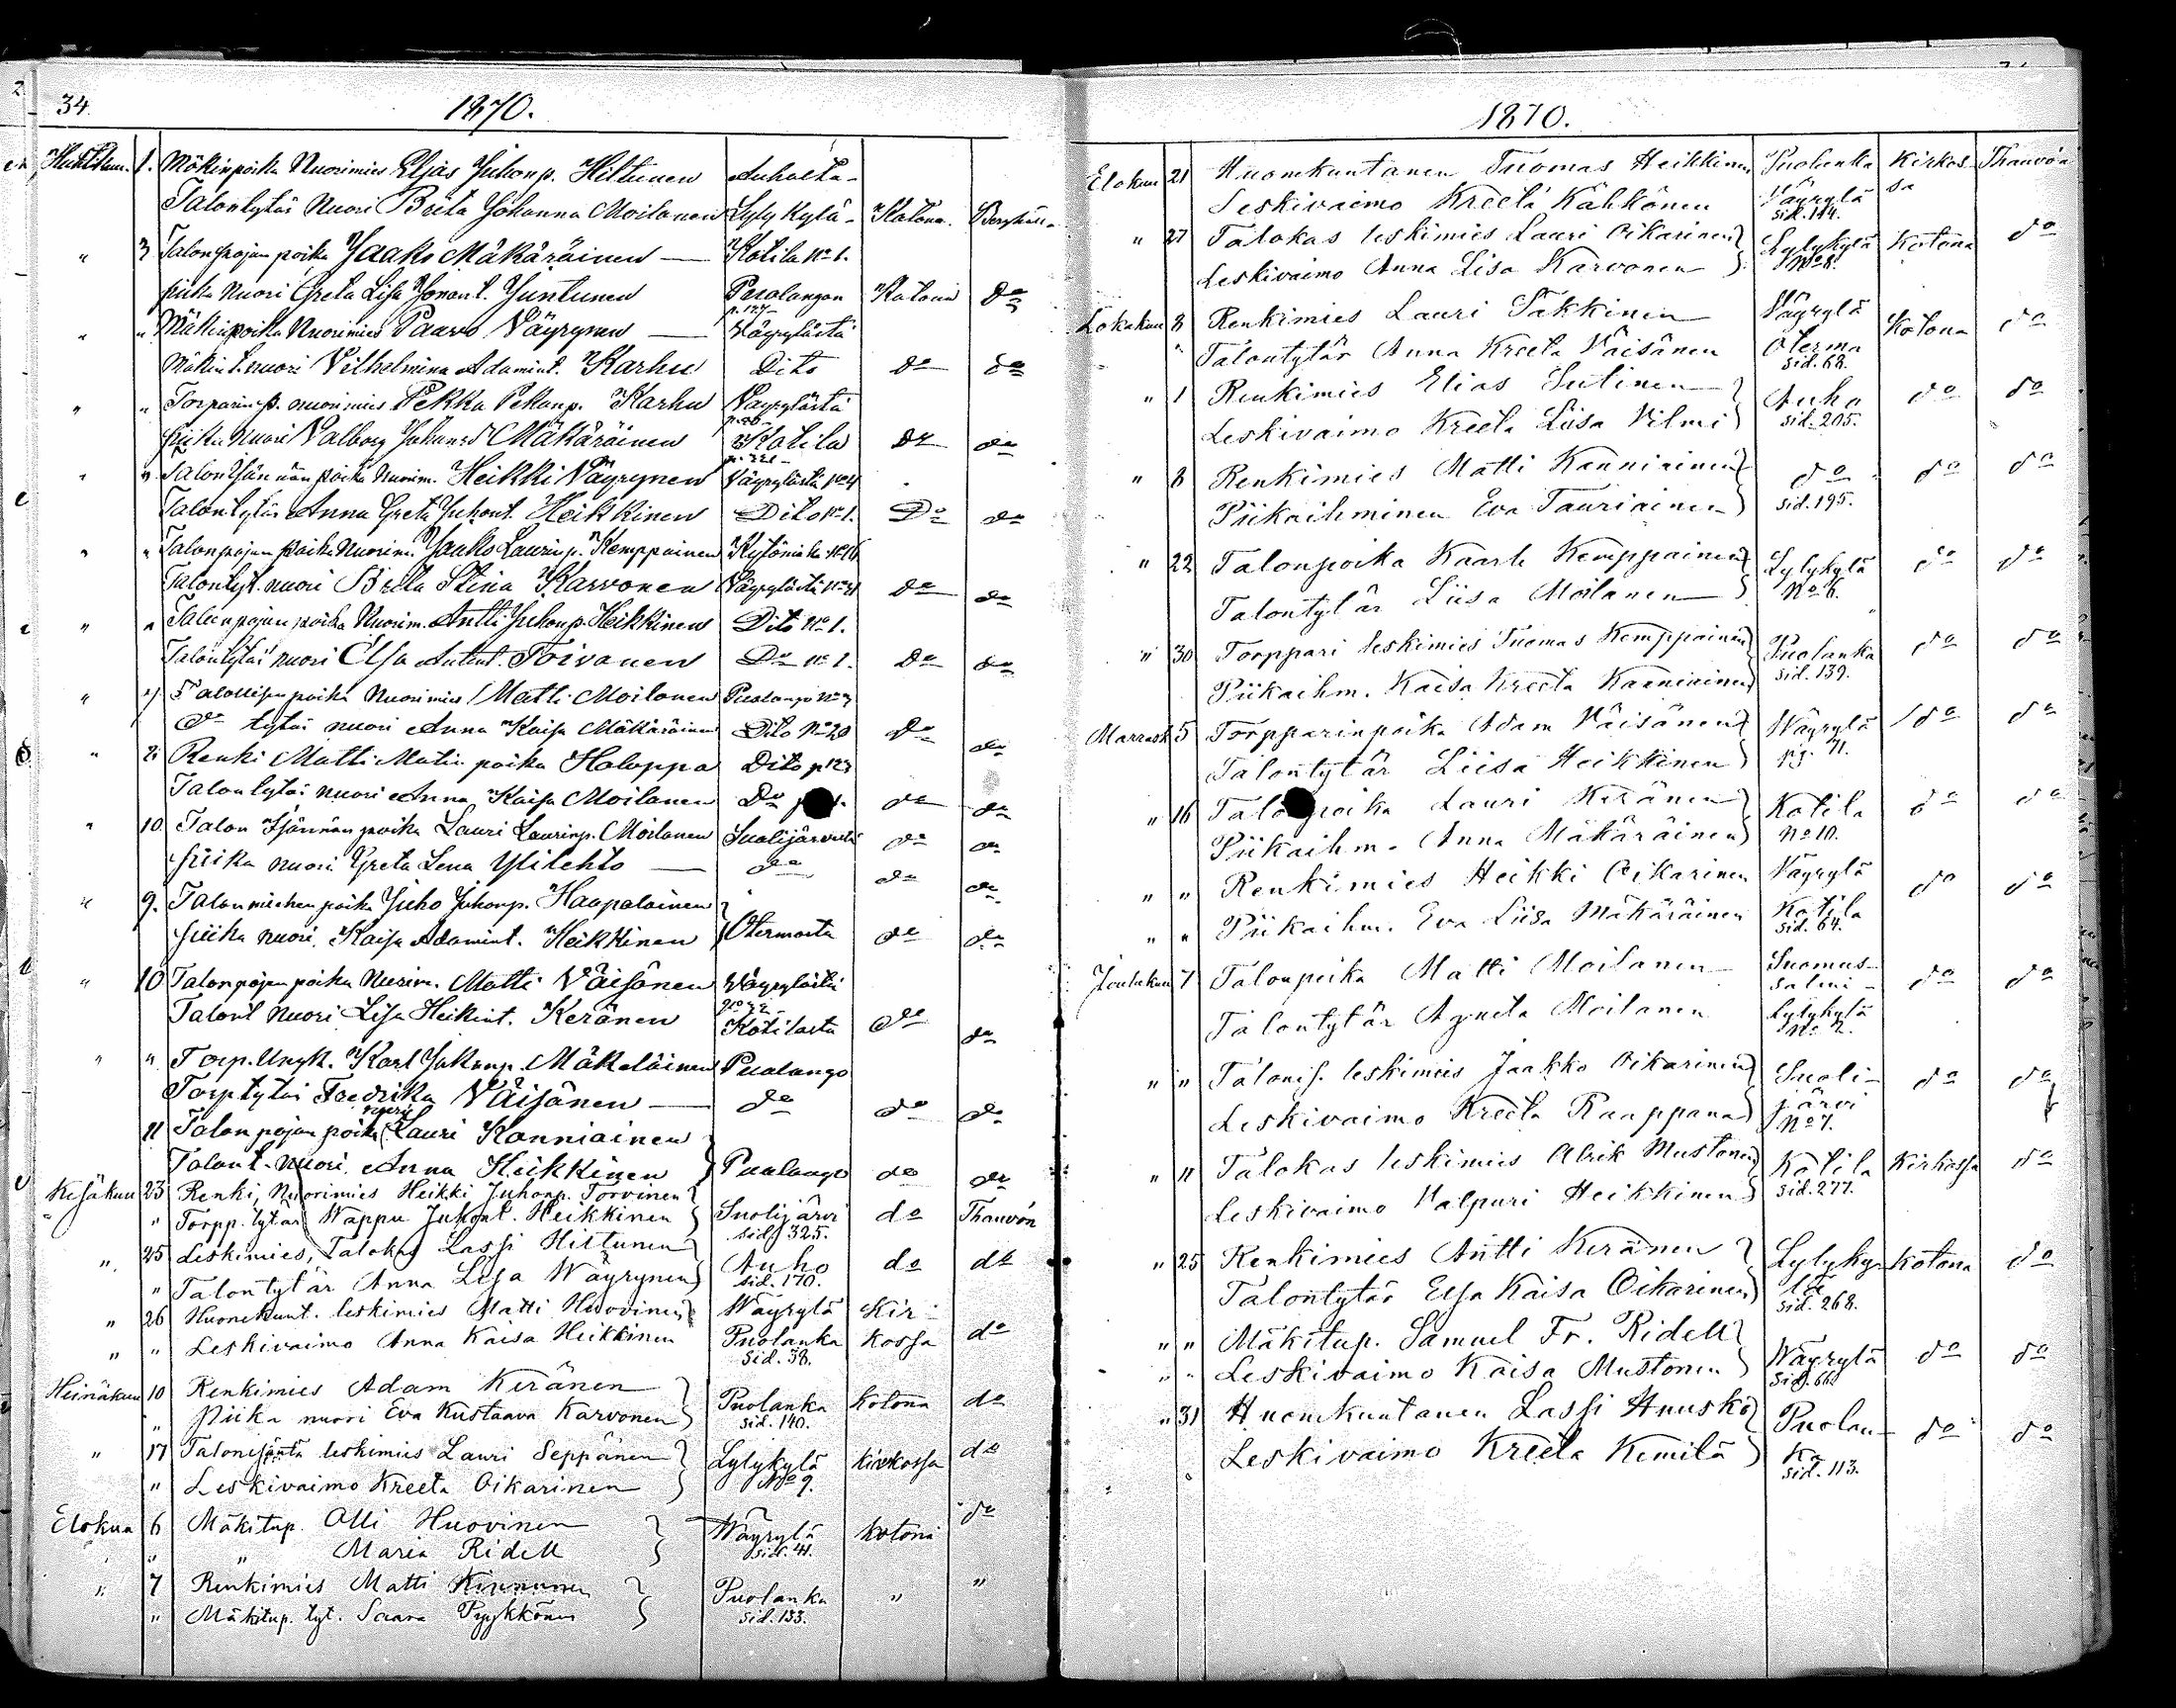 34.
1870.
Huhtikuu. 1. Mökinpoika Nuorimies Elias Juhonp. Hiltunen Auholta-
Talontytär Nuori Brita Johanna Moilanen Lylykylä- Kotona. Berghäll-
" 3 Talonpojan poika Jaako Mäkäräinen — Kotila No 1.
piika Nuori Greta Lisa Junttunen Puolangon Kotona do
" " Mäkinpoika Nuorimies Paavo Väyrynen — Väyrylästä
Mäkin t. nuori Vilhelmina Adamint. Karhu Dito do do
" " Torparin p. nuorimies Pekka Pekanp. Karhu Väyrylästä
piika Nuori Valborg Juhant. Mäkäräinen Kotila do do
" " Talon isännän poika Nuorim. Heikki Väyrynen Väyrylästä No 4
Talontytär Anna Greta Juhont. Heikkinen Dito No 1. Do do
" " Talonpojan poika Nuorim. Jaako Laurinp. Kemppainen Kytömäki No 16
Talontyt. nuori Brita Stina Karvonen Väyrylästä do do
" " Talonpojan poika Nuorim. Antti Juhonp. Heikkinen Dito No 1.
Talontytär nuori Elsa Antint. Toivanen Do No 1. do do
" 4 Talollisen poika Nuorimies Matti Moilanen Puolango No 3
do tytär nuori Anna Kaisa Mäkäräinen Dito No 20 do do
" Renki Matti Matin poika Haloppa Dito
Talontytär nuori Anna Kaisa Moilanen Do do do
" 10 Talon Isännän poika Lauri Laurinp. Moilanen Suolijärveltä do do
piika nuori Greta Lena Ylilehto — do do do
" 9. Talonmiehen poika Juho Juhonp. Haapalainen
piika nuori Kaisa Adamint. Heikkinen Otermalta do do
" 10 Talonpojan poika Nuorim. Matti Väisänen Väyrylästä
Talont. Nuori Lisa Heikint. Keränen Kotilasta do do
" " Torp. Karl Jakonp. Mäkeläinen Puolango
Torp tytär Fredrika Väisänen — do do do
11 Talon pojan poika nuori Lauri Kanniainen
Talont. nuori Anna Heikkinen Puolango do do
Kesäkuu 23 Renki, Nuorimies Heikki Juhonp. Torvinen
" Torpp. tytär Wappu Juhont. Heikkinen Suolijärvi sid. 325. do Thauvón
" 25 Leskimies, Talokas Lassi Hiltunen
" Talontytär Anna Lisa Wäyrynen Auho sid. 170. do do
" 26 Huonekunt. leskimies Matti Huovinen Wäyrylä Kir-
" " Leskivaimo Anna Kaisa Heikkinen Puolanka sid. 38. kossa do
Heinäkuu 10 Renkimies Adam Keränen
" Piika nuori Eva Kustaava Karvonen Puolanka sid. 140. Kotona do
" 17 Talonisäntä leskimies Lauri Seppänen
" Leskivaimo Kreeta Oikarinen Lylykylä No 9. kirkossa do
Elokuu 6 Mäkitup. Olli Huovinen
" " Maria Ridell Wäyrylä sid. 41. kotona do
" 7 Renkimies Matti Kinnunen
" Mäkitup. tyt. Saara Pyykkönen Puolanka sid. 133. " "
1870.
Elokuu 21 Huonekuntanen Tuomas Heikkinen Puolanka Kirkos- Thauvón
Leskivaimo Kreeta Kähkönen Väyrylä sid. 114. sa
" 27 Talokas leskimies Lauri Oikarinen
Leskivaimo Anna Lisa Karvonen Lylykylä No 8. Kotona do
Lokakuu 8 Renkimies Lauri Takkinen Väyrylä
" Talontytär Anna Kreeta Väisänen Oterma sid. 68. Kotona do
" 1 Renkimies Elias Sutinen
Leskivaimo Kreeta Liisa Vilmi Auho sid. 205. do do
" 8 Renkimies Matti Kanniainen
Piikaihminen Eva Tauriainen do sid. 195. do do
" 22 Talonpoika Kaarle Kemppainen
Talontytär Liisa Moilanen Lylykylä No 6. do do
" 30 Torppari leskimies Tuomas Kemppainen
Piikaihm. Kaisa Kreeta Kanniainen Puolanka sid. 139. do do
Marrask. 5 Torpparinpoika Adam Väisänen
Talontytär Liisa Heikkinen Väyrylä pg. 71. do do
" 16 Talonpoika Lauri Keränen
Piikaihm. Anna Mäkäräinen Kotila No 10. do do
" " Renkimies Heikki Oikarinen Väyrylä
" " Piikaihm. Eva Liisa Mäkäräinen Kotila sid. 64. do do
Joulukuu 7 Talonpoika Matti Moilanen Suomus-salmi- do do
Talontytär Agneta Moilanen Lylykylä No 2.
" " Talonis. leskimies Jaakko Oikarinen
Leskivaimo Kreeta Raappana Suoli-järvi No 7. do do
" 11 Talokas leskimies Alrik Mustonen
Leskivaimo Valpuri Heikkinen Kotila sid. 277. Kirkossa do
" 25 Renkimies Antti Keränen
Talontytär Elsa Kaisa Oikarinen Lylyky-lä sid. 268. Kotona do
" " Mäkitup. Samuel Fr. Ridell
" " Leskivaimo Kaisa Mustonen Wäyrylä sid. 66. do do
" 31 Huonekuntanen Lassi Huusko
" Leskivaimo Kreeta Kemilä Puolan-ka sid. 113. do do